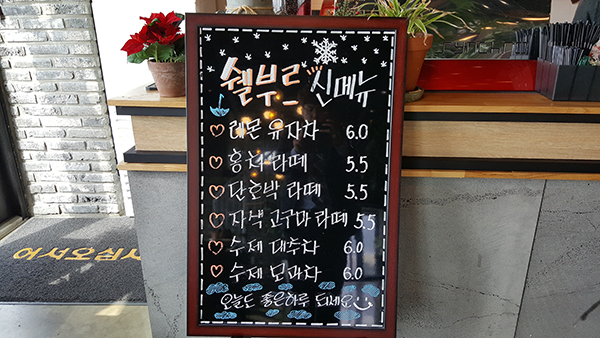 쉘부르 신메뉴
레몬 유자차 6.0
홍차 라떼 5.5
단호박 라떼 5.5
자색 고구마 라떼 5.5
수제 대추차 6.0
수제 모과차 6.0
오늘도 좋은하루 되세요
어서오십시